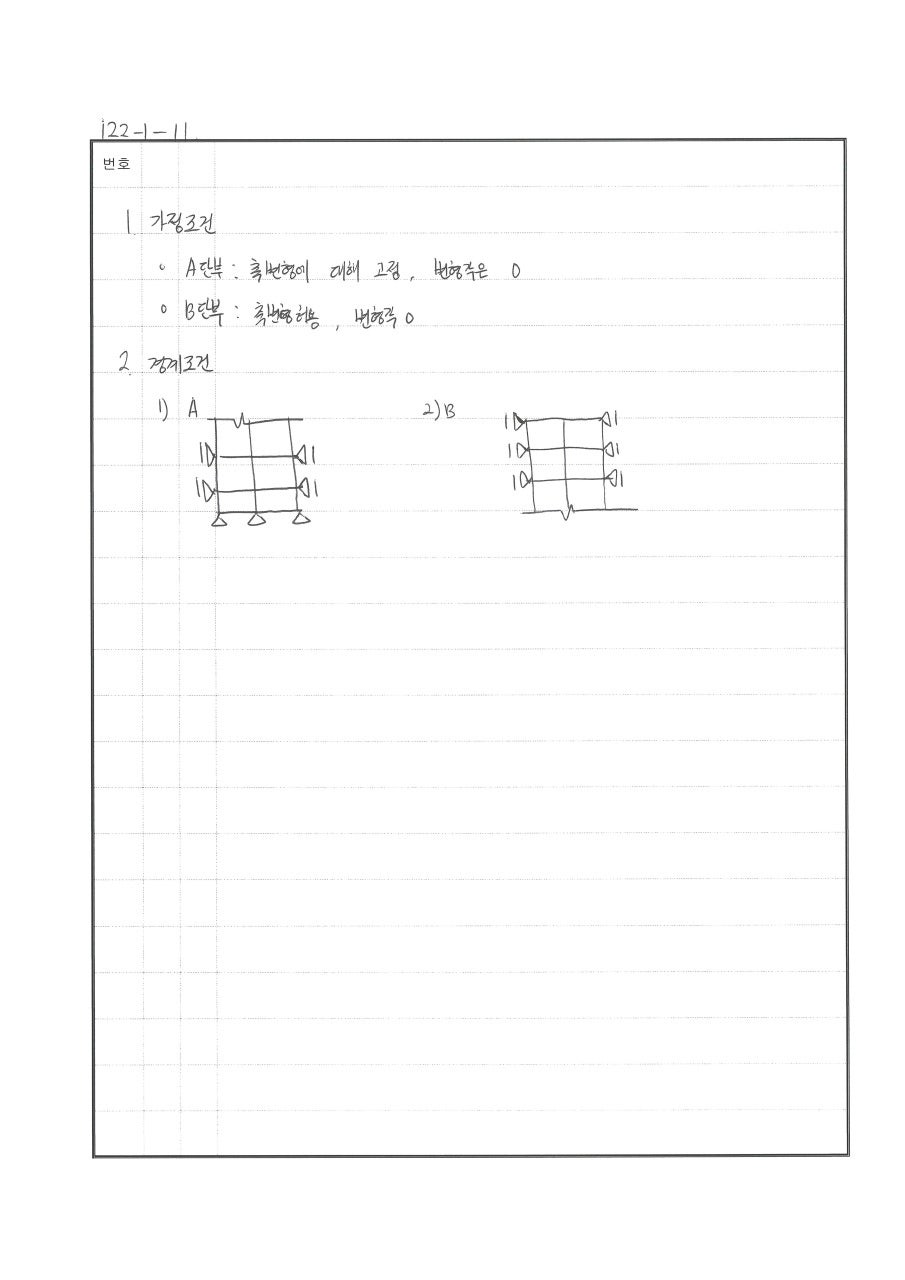 122-1-11.
번호
1 가정조건
◦ A단부 : 축변형에 대해 고정, 변형각은 0
◦ B단부 : 축변형허용, 변형각 0
2. 경계조건
1) A 2) B